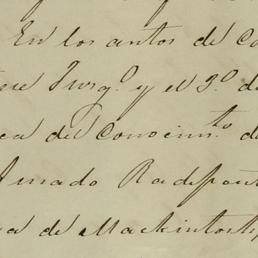 En los autos de Co
que Juzgo. y el 3o. de
ca de Conocimto. de
Amado Radepont
ya de Mackintosh y